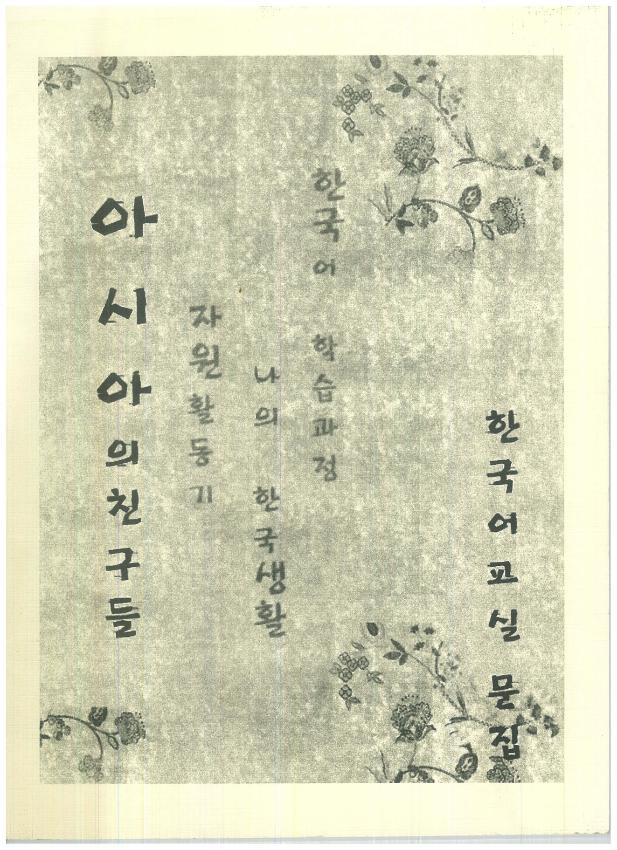 한국어교실 문집
한국어 학습과정
나의 한국생활
자원활동기
아시아의친구들